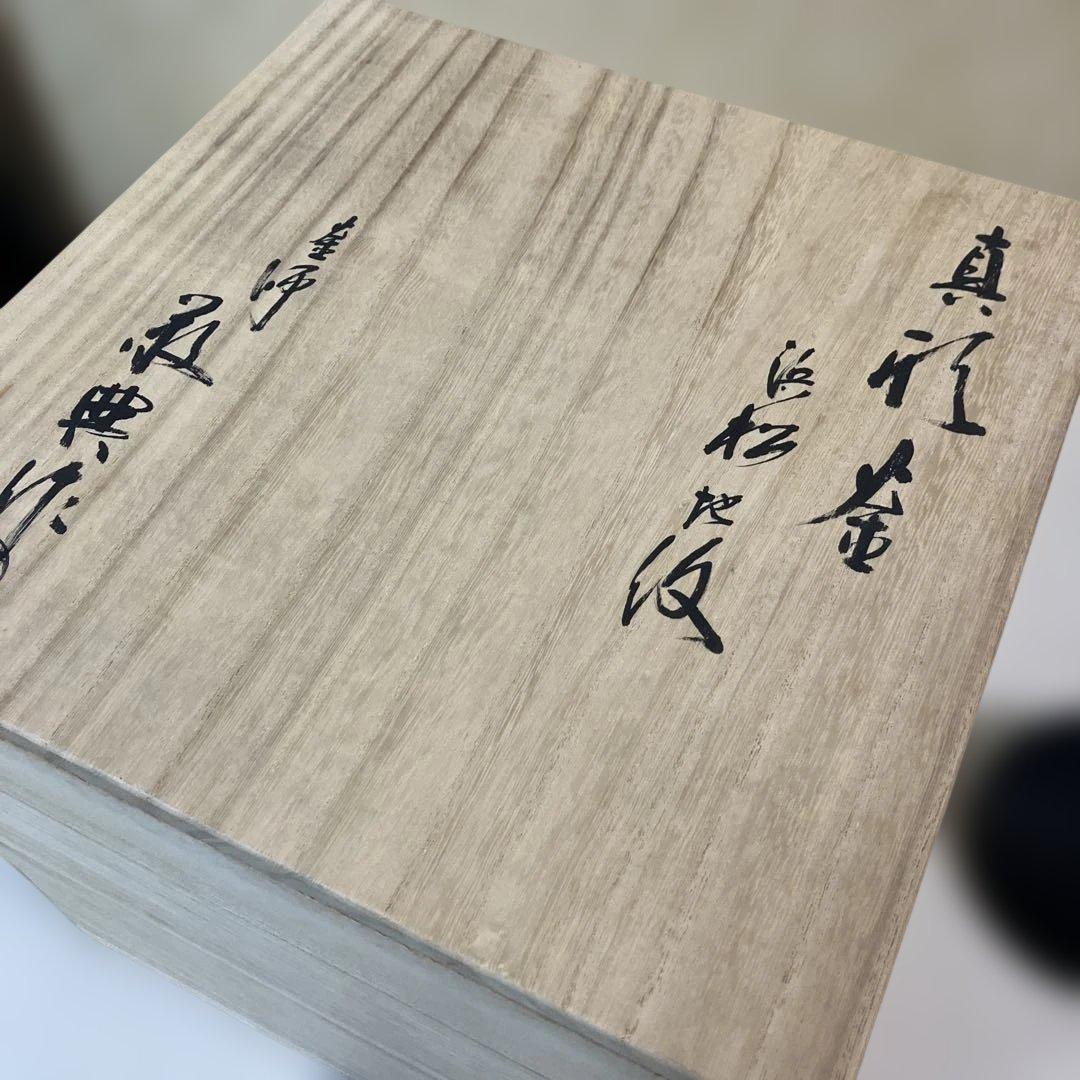 真形釜
浜松地紋
釜師敬典作